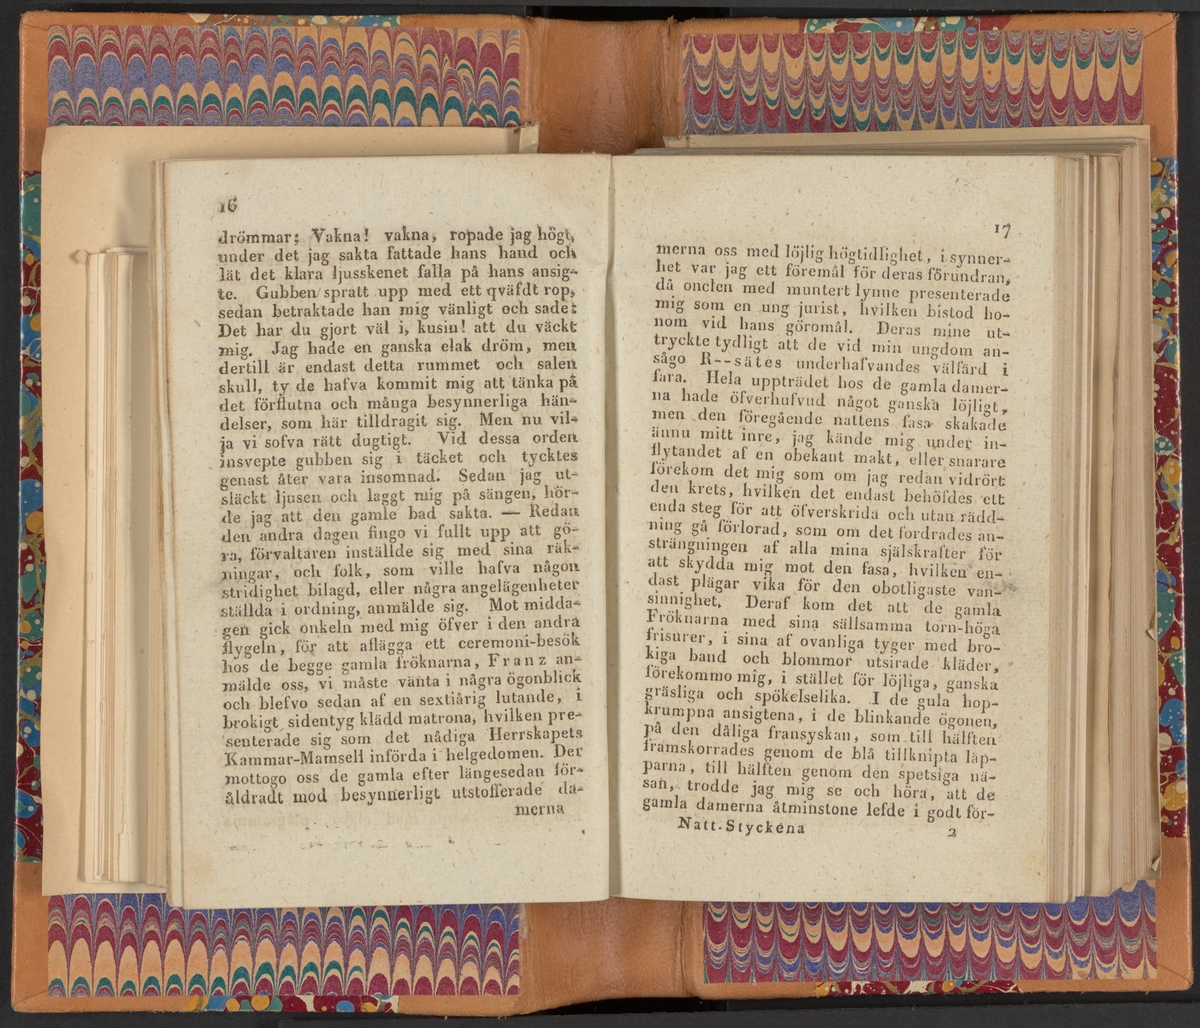 16
drömmar; Vakna! vakna, ropade jag högt,
under det jag sakta fattade hans hand och
lät det klara ljusskenet falla på hans ansig-
te. Gubben spratt upp med ett qväfdt rop,
sedan betraktade han mig vänligt och sade:
Det har du gjort väl i, kusin! att du väckt
mig. Jag hade en ganska elak dröm, men
dertill är endast detta rummet och salen
skull, ty de hafva kommit mig att tänka på
det förflutna och många besynnerliga hän-
delser, som här tilldragit sig. Men nu vil-
ja vi sofva rätt dugtigt. Vid dessa orden
insvepte gubben sig i täcket och tycktes
genast åter vara insomnad. Sedan jag ut-
släckt ljusen och laggt mig på sängen, hör-
de jag att den gamle bad sakta. — Redan
den andra dagen fingo vi fullt upp att gö-
ra, förvaltaren inställde sig med sina räk-
ningar, och folk, som ville hafva någon
stridighet bilagd, eller några angelägenheter
ställda i ordning, anmälde sig. Mot midda-
gen gick onkeln med mig öfver i den andra
flygeln, för att aflägga ett ceremoni-besök
hos de begge gamla fröknarna, Franz an-
mälde oss, vi måste vänta i några ögonblick
och blefvo sedan af en sextiårig lutande, i
brokigt sidentyg klädd matrona, hvilken pre-
senterade sig som det nådiga Herrskapets
Kammar-Mamsell införda i helgedomen. Der
mottogo oss de gamla efter längesedan för-
åldradt mod besynnerligt utstofferade da-
merna
17
merna oss med löjlig högtidlighet, i synner-
het var jag ett föremål för deras förundran,
då onclen med muntert lynne presenterade
mig som en ung jurist, hvilken bistod ho-
nom vid hans göromål. Deras mine ut-
tryckte tydligt att de vid min ungdom an-
sågo R--sätes underhafvandes välfärd i
fara. Hela uppträdet hos de gamla damer-
na hade öfverhufvud något ganska löjligt,
men den föregående nattens fasa skakade
ännu mitt inre, jag kände mig under in-
flytandet af en obekant makt, eller snarare
förekom det mig som om jag redan vidrört
den krets, hvilken det endast behöfdes ett
enda steg för att öfverskrida och utan rädd-
ning gå förlorad, som om det fordrades an-
strängningen af alla mina själskrafter för
att skydda mig mot den fasa, hvilken en-
dast plägar vika för den obotligaste van-
sinnighet. Deraf kom det att de gamla
Fröknarna med sina sällsamma torn-höga
frisurer, i sina af ovanliga tyger med bro-
kiga band och blommor utsirade kläder,
förekommo mig, i stället för löjliga, ganska
gräsliga och spökelselika. I de gula hop-
krumpna ansigtena, i de blinkande ögonen,
på den dåliga fransyskan, som till hälften
framskorrades genom de blå tillknipta läp-
parna, till hälften genom den spetsiga nä-
san, trodde jag mig se och höra, att de
gamla damerna åtminstone lefde i godt för-
Natt-Styckena 2